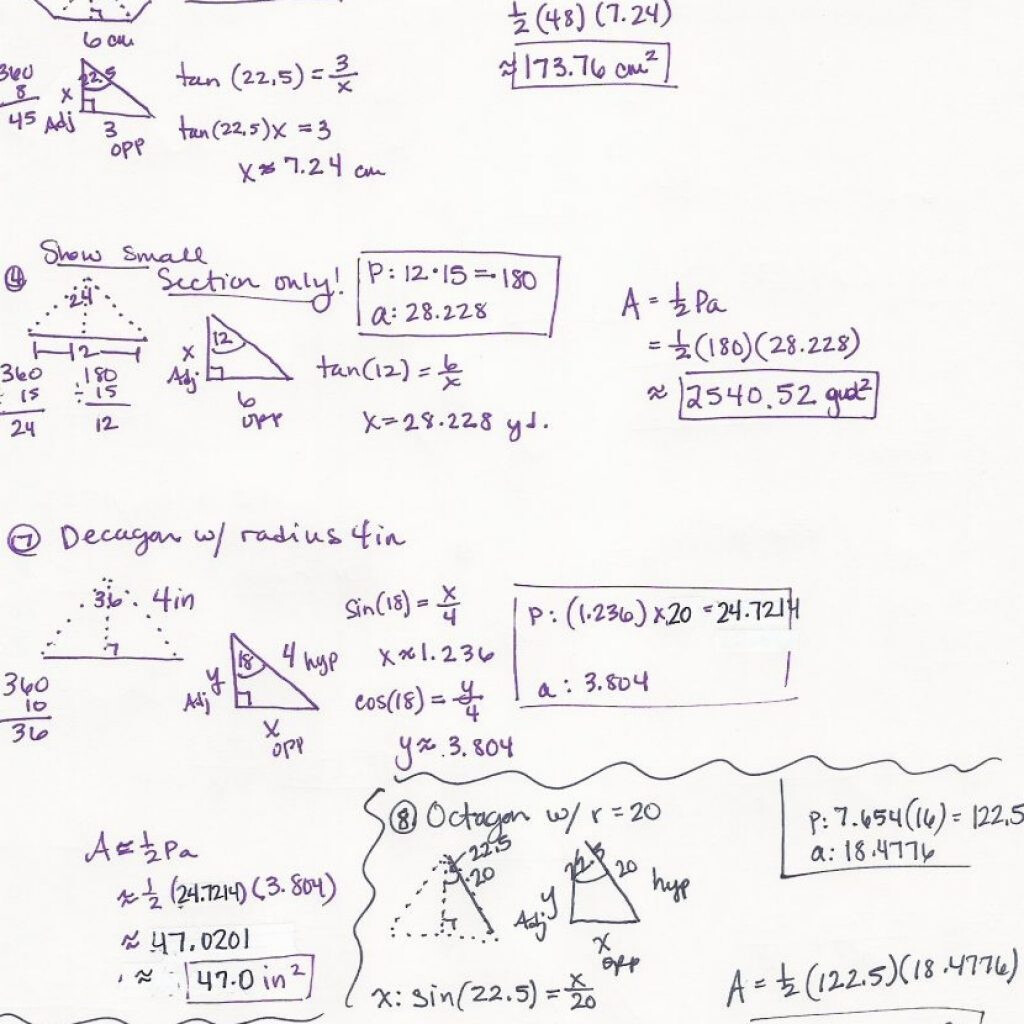 6 cm
1/2 (48) (7.24)
≈ 173.76 cm²
360
8
45
22.5
x
Adj
3
opp
tan (22.5) = 3/x
tan(22.5)x = 3
x ≈ 7.24 cm
④ Show small
Section only!
24
12
360
÷ 15
24
180
÷ 15
12
12
x
Adj
6
opp
P: 12·15 = 180
a: 28.228
tan(12) = 6/x
x = 28.228 yd.
A = 1/2 Pa
= 1/2 (180)(28.228)
≈ 2540.52
⑦ Decagon w/ radius 4in
36
4in
360
10
36
18
y
Adj
4 hyp
x
opp
sin(18) = x/4
x ≈ 1.236
cos(18) = y/4
y ≈ 3.804
P: (1.236) x 20 = 24.7214
a: 3.804
A ≈ 1/2 Pa
≈ 1/2 (24.7214)(3.804)
≈ 47.0201
≈ 47.0 in²
⑧ Octagon w/ r = 20
22.5
20
22.5
20
hyp
y
Adj
x
opp
x: sin(22.5) = x/20
P: 7.654(16) = 122.5
a: 18.4776
A = 1/2 (122.5)(18.4776)